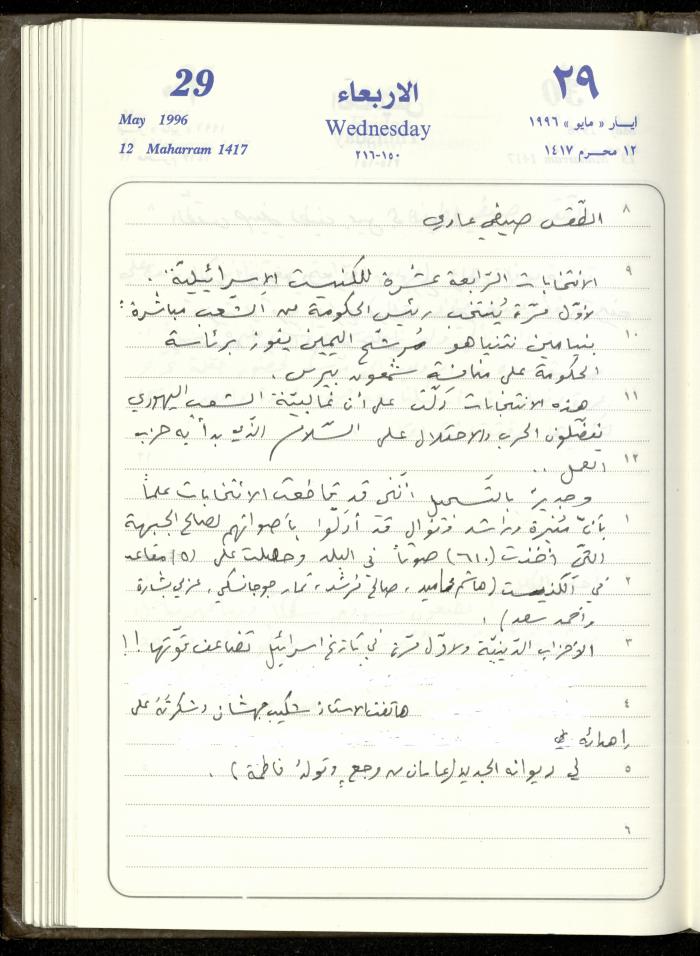 29
٢٩
الاربعاء
May 1996
Wednesday
ايار « مايو » ١٩٩٦
12 Maharram 1417
١٢ محرم ١٤١٧
٢١٦-١٥٠
٨ الطّقس صيفي عادي
٩ الانتخابات الرّابعة عشرة للكنيست الإسرائيليّة.
لأوّل مرّة يُنتخب رئيس الحكومة من الشّعب مباشرة:
١٠ بنيامين نتنياهو مُرشّح اليمين يفوز برئاسة
الحكومة على منافسه شمعون بيرس.
١١ هذه الانتخابات دَلّت على أن غالبيّة الشعب اليهودي
يفضّلون الحرب والاحتلال على السّلام الّذي بدأ به حزب
١٢ العمل ..
وجديرٌ بالتّسجيل أنّني قد قاطعت الانتخابات علمًا
١ بأنّ مُنيرة وراشد ونوال قد أدلوا بأصواتهم لصالح الجبهة
الّتي أخذت (٦١٠) صوتًا في البلد وحصلت على (٥) مقاعد
٢ في الكنيست (هاشم محاميد، صالح مُرشد، تمار جوجانسكي، عزمي بشارة
وأحمد سعد).
٣ الأحزاب الدّينيّة ولأوّل مرّة في تاريخ اسرائيل تضاعف قوّتها!!
٤ هاتفت الاستاذ شكيب جهشان وشكرته على
إهدائه
٥ لي ديوانه الجديد (عامان من وجع وتولد فاطمة).
٦